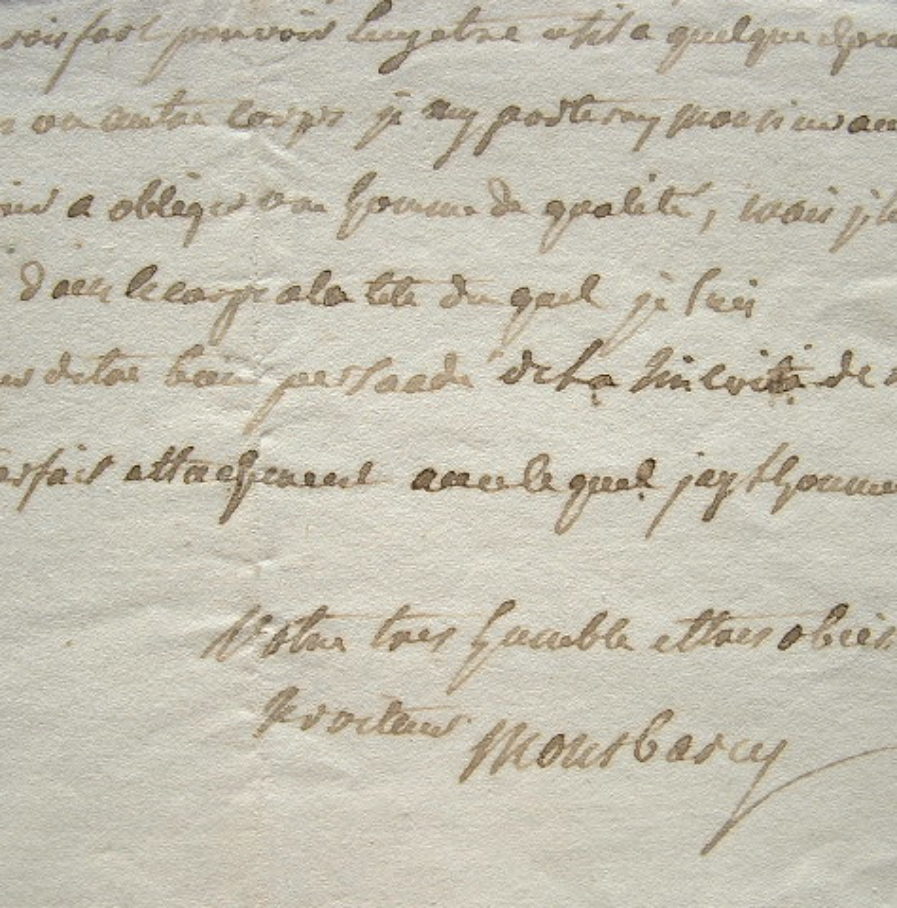 pouvoir luy etre utile a quelque
un autre corps je my porteray monsieur
a obliger un homme de qualité, mais je
dans le corps a la tete du quel je suis
detre bien persuadé de la sincerité de
parfait attachement avec le quel jay lhonneur
Votre tres humble et tres obeis
serviteur Montbarey